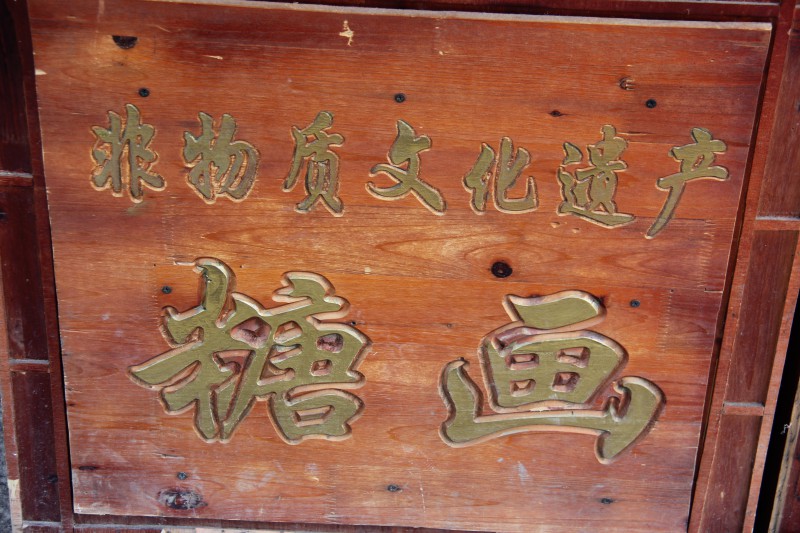 非物质文化遗产
糖画